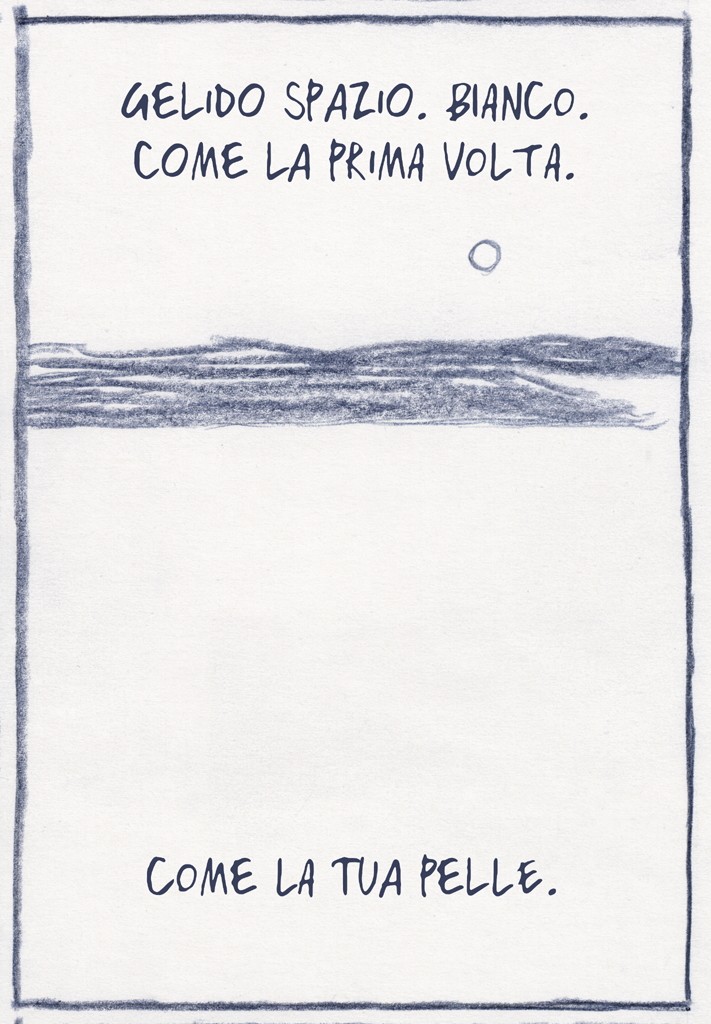 GELIDO SPAZIO. BIANCO.
COME LA PRIMA VOLTA.
COME LA TUA PELLE.